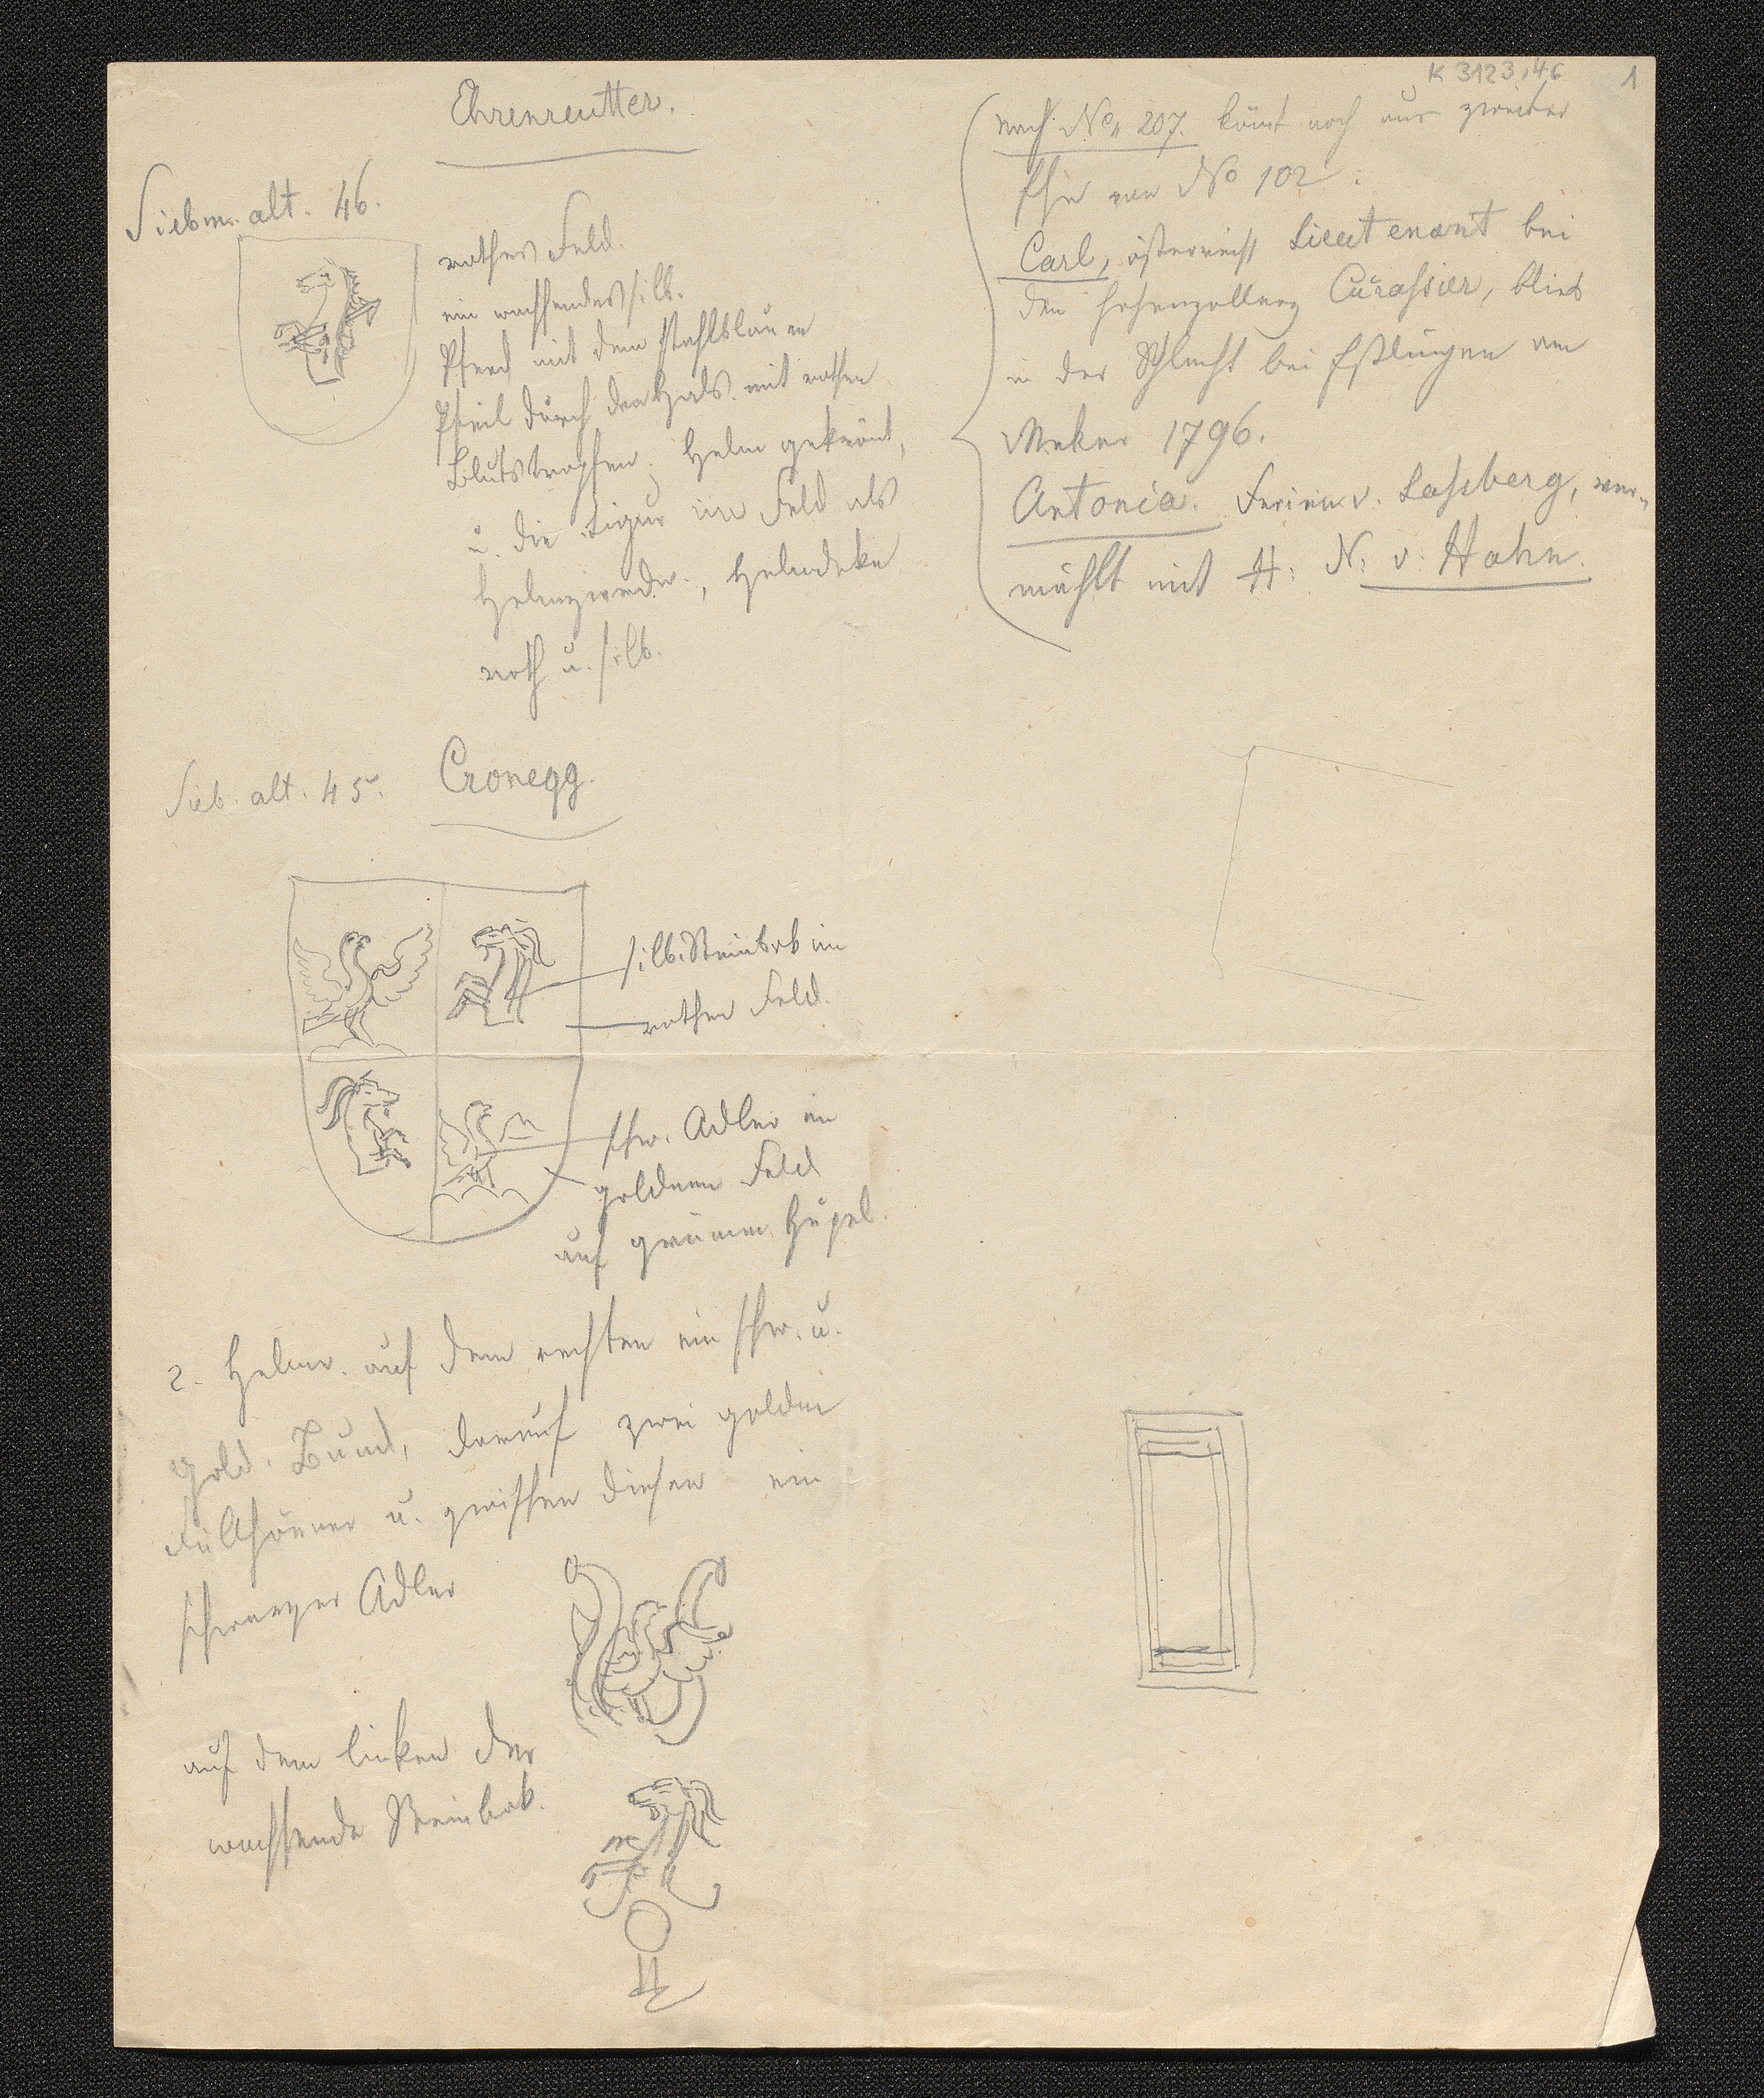 K 3123,46
1
Ehrenreutter.
Siebm. alt. 46.
rothes Feld.
ein wachsendes silb.
Pferd mit dem stahlblauen
Pfeil durch den Hals mit rothen
Blutstropfen; Helm gekrönt,
u. die Figur im Feld als
Helmzierde, Helmdeke
roth u. silb.
Sieb. alt. 45.
Cronegg.
silb. Steinbok im
rothen Feld.
schw. Adler im
goldenen Feld
auf grünem Hügel.
2. Helme. auf dem rechten ein schw. u.
gold. Bund, darauf zwei goldene
Füllhörner u. zwischen diesen ein
schwarzer Adler
auf dem linken der
wachsende Steinbok.
nach No 207. kömt noch aus zweiter
Ehe von No 102:
Carl, österreich Lieutenant bei
den Hohenzollern Cürassier, blieb
in der Schlacht bei Eßlingen am
Neker 1796.
Antonia. Freiin v. Lassberg, ver-
mählt mit H: N: v. Hahn.